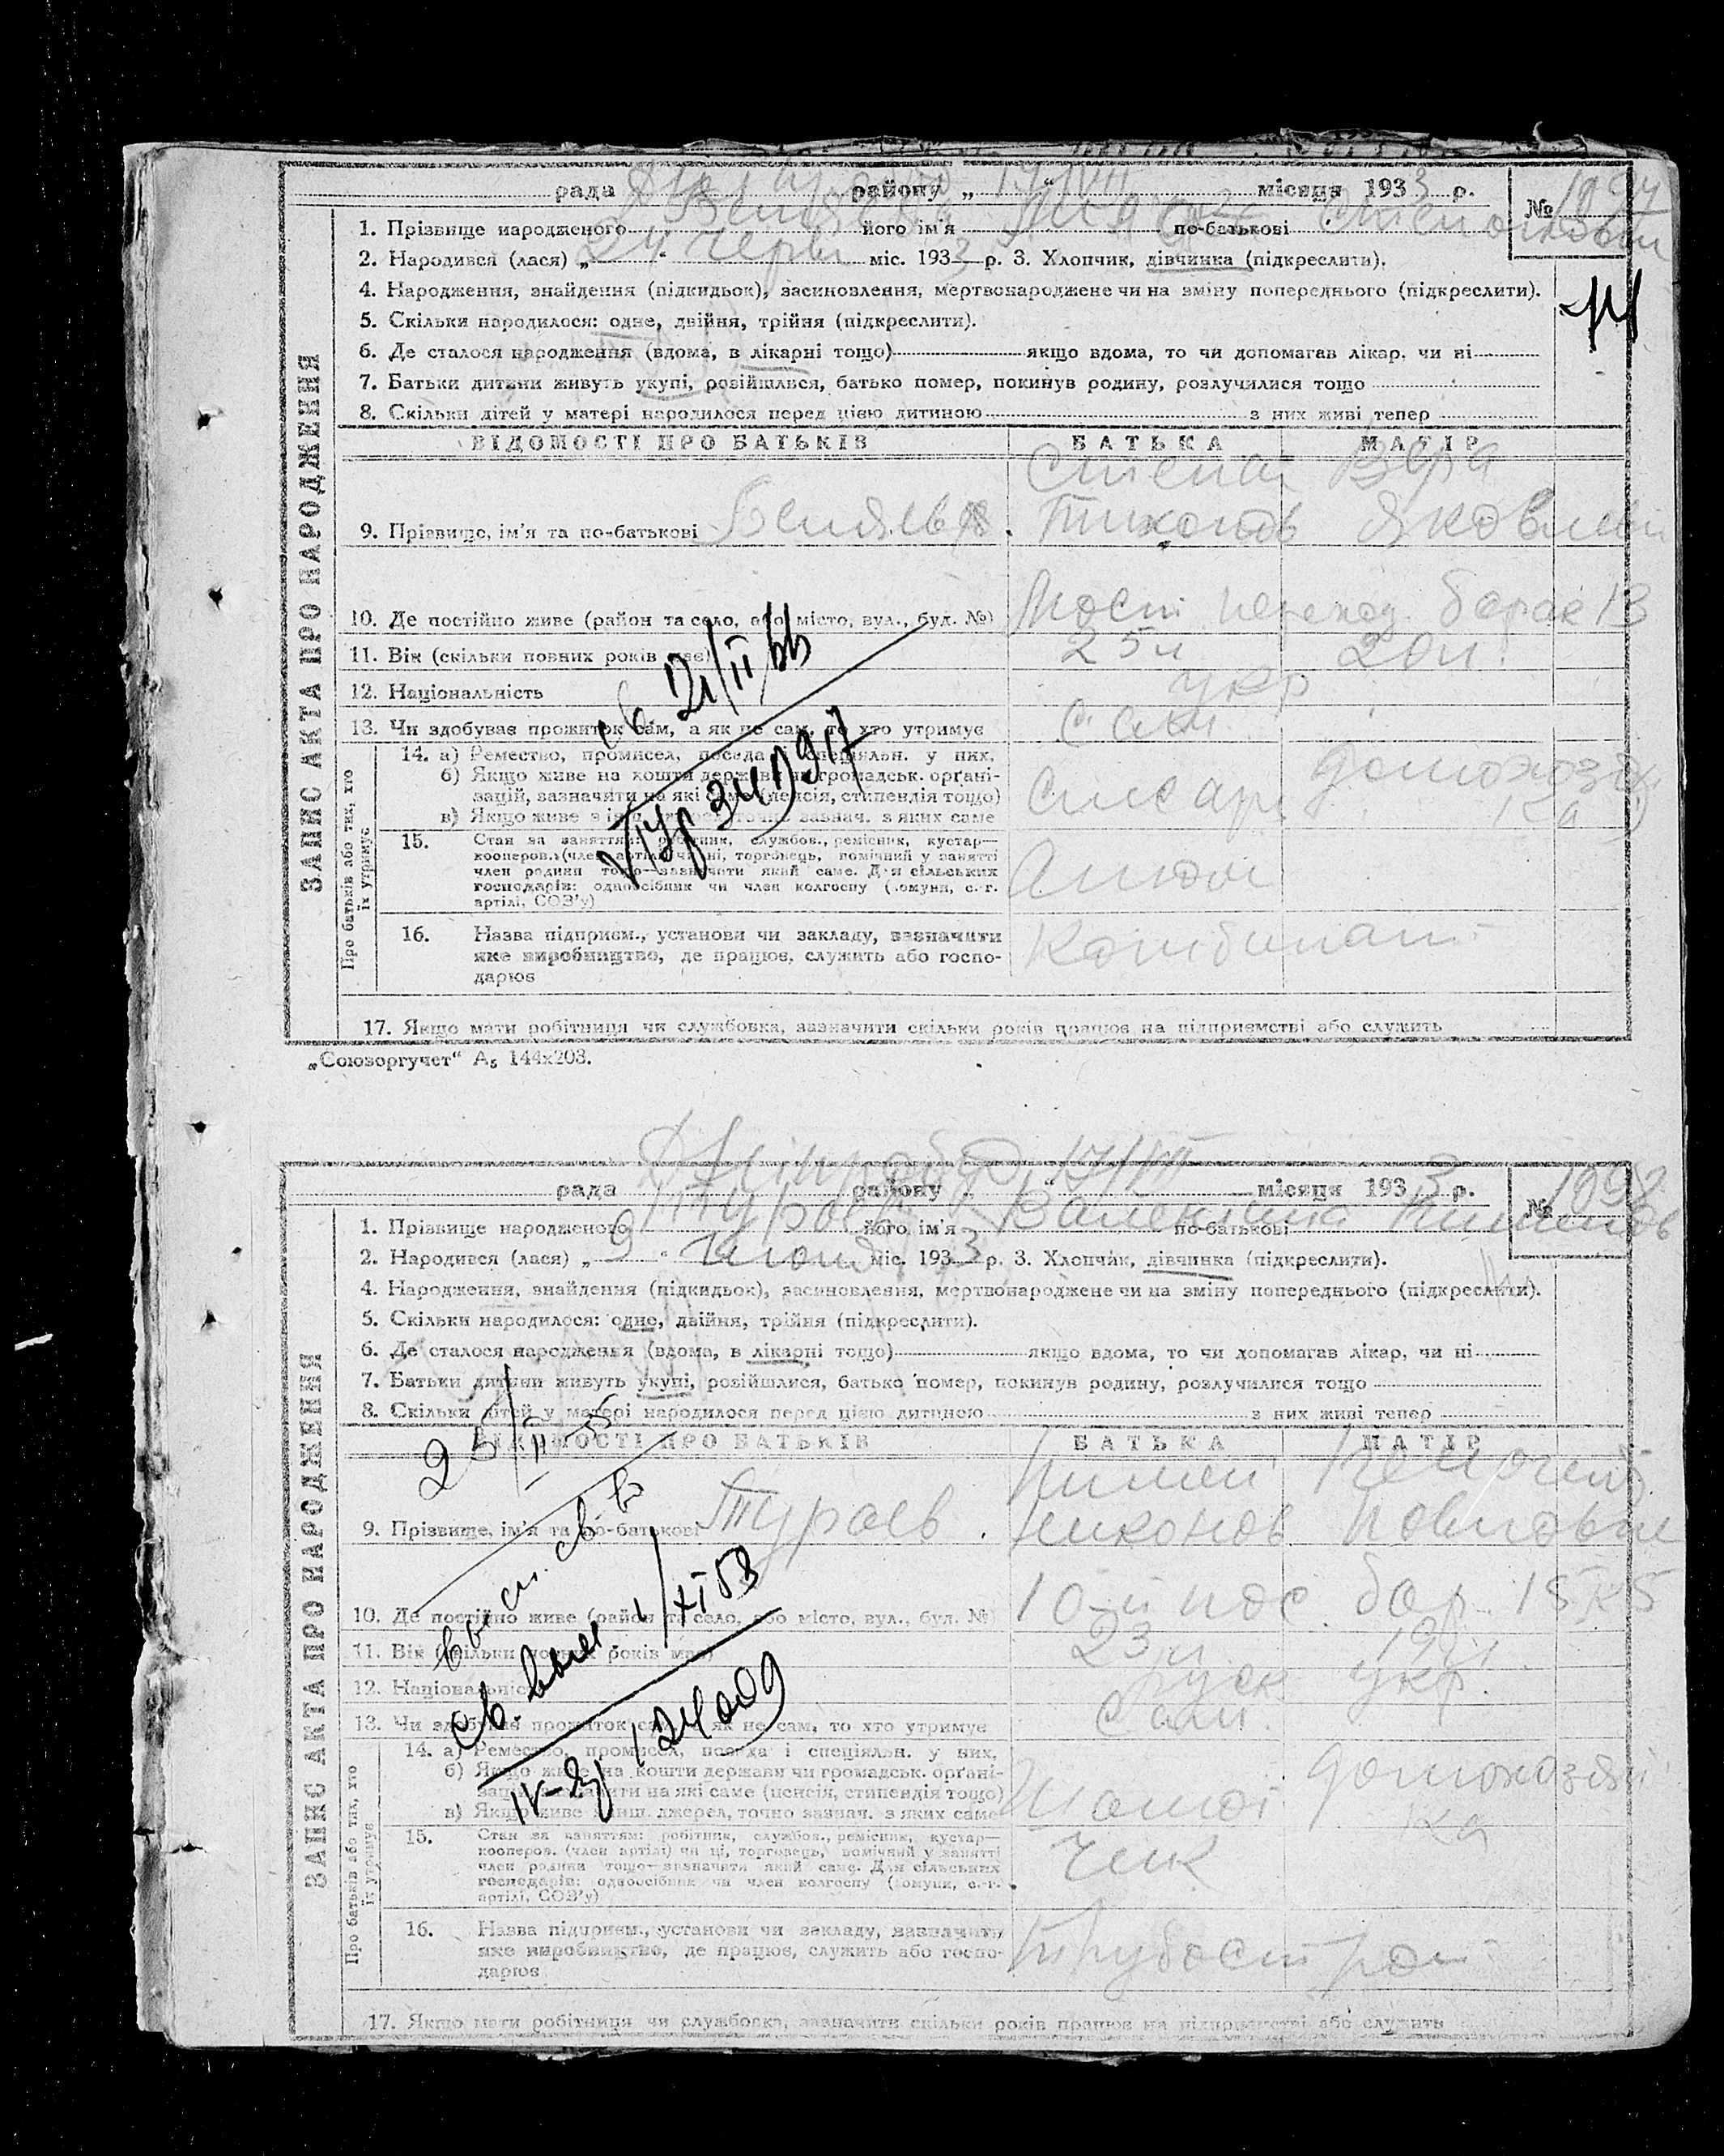 рада району „ 17/VII “ місяця 193 3 р.
№ 1997
1. Прізвище народженого Беляева його ім'я по-батькові Степановна
2. Народився (лася) „ 24 “ черв міс. 193 3 р. 3. Хлопчик, дівчинка (підкреслити).
4. Народження, знайдення (підкидьок), засиновлення, мертвонароджене чи на зміну попереднього (підкреслити).
5. Скільки народилося: одне, двійня, трійня (підкреслити).
6. Де сталося народження (вдома, в лікарні тощо) якщо вдома, то чи допомагав лікар, чи ні
7. Батьки дитини живуть укупі, розійшлися, батько помер, покинув родину, розлучилися тощо
8. Скільки дітей у матері народилося перед цією дитиною з них живі тепер
ЗАПИС АКТА ПРО НАРОДЖЕННЯ
ВІДОМОСТІ ПРО БАТЬКІВ БАТЬКА МАТІР
Степан Вера
9. Прізвище, ім'я та по-батькові Беляев. Тихонов Яковлев
10. Де постійно живе (район та село, або місто, вул., буд. №) барак 13
11. Вік (скільки повних років має) 25 л 20 л.
12. Національність укр
13. Чи здобуває прожиток сам, а як не сам, то хто утримує сам
Про батьків або тих, хто їх утримує
14. а) Ремество, промисел, посада і спеціяльн. у них,
б) Якщо живе на кошти держави чи громадськ. орґані-
зацій, зазначити на які саме (пенсія, стипендія тощо) слесарь домохозяй
в) Якщо живе з інш. джерел, точно зазнач. з яких саме ка
15. Стан за заняттям: робітник, службов., ремісник, кустар—
кооперов. (член артілі) чи ні, торговець, помічний у занятті
член родини тощо—зазначити який саме. Для сільських
господарів: одноосібник чи член колгоспу (комуни, с.-г.
артілі, СОЗ'у)
16. Назва підприєм., установи чи закладу, зазначити Комбинат
яке виробництво, де працює, служить або госпо-
дарює
св 21/II 66
17. Якщо мати робітниця чи службовка, зазначити скільки років працює на підприємстві або служить
„Союзоргучет“ А5 144х203.
рада району „ 17/VII “ місяця 193 3 р.
№ 1998
1. Прізвище народженого Тураева його ім'я Валентина по-батькові
2. Народився (лася) „ 9 “ міс. 193 3 р. 3. Хлопчик, дівчинка (підкреслити).
4. Народження, знайдення (підкидьок), засиновлення, мертвонароджене чи на зміну попереднього (підкреслити).
5. Скільки народилося: одне, двійня, трійня (підкреслити).
6. Де сталося народження (вдома, в лікарні тощо) якщо вдома, то чи допомагав лікар, чи ні
7. Батьки дитини живуть укупі, розійшлися, батько помер, покинув родину, розлучилися тощо
8. Скільки дітей у матері народилося перед цією дитиною з них живі тепер
ЗАПИС АКТА ПРО НАРОДЖЕННЯ
ВІДОМОСТІ ПРО БАТЬКІВ БАТЬКА МАТІР
9. Прізвище, ім'я та по-батькові Тураев. Никонов
10. Де постійно живе (район та село, або місто, вул., буд. №) 10-й пос бар. 15 к 5
11. Вік (скільки повних років має) 23 л 19 л
12. Національність руск укр.
13. Чи здобуває прожиток сам, а як не сам, то хто утримує сам.
Про батьків або тих, хто їх утримує
14. а) Ремество, промисел, посада і спеціяльн. у них,
б) Якщо живе на кошти держави чи громадськ. орґані-
зацій, зазначити на які саме (пенсія, стипендія тощо) домохозяй
в) Якщо живе з інш. джерел, точно зазнач. з яких саме ка
15. Стан за заняттям: робітник, службов., ремісник, кустар—
кооперов. (член артілі) чи ні, торговець, помічний у занятті
член родини тощо—зазначити який саме. Для сільських
господарів: одноосібник чи член колгоспу (комуни, с.-г.
артілі, СОЗ'у)
16. Назва підприєм., установи чи закладу, зазначити Трубострой
яке виробництво, де працює, служить або госпо-
дарює
св. 1/XI 58
17. Якщо мати робітниця чи службовка, зазначити скільки років працює на підприємстві або служить